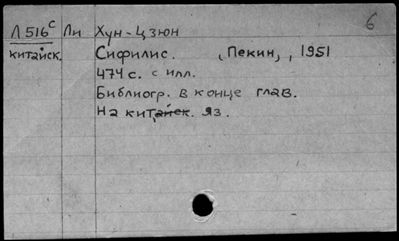 Л516ᶜ Ли Хун-Цзюн 6
китайск. Сифилис. (Пекин), 1951
474 с. с илл.
Библиогр. в конце глав.
На китайск. яз.